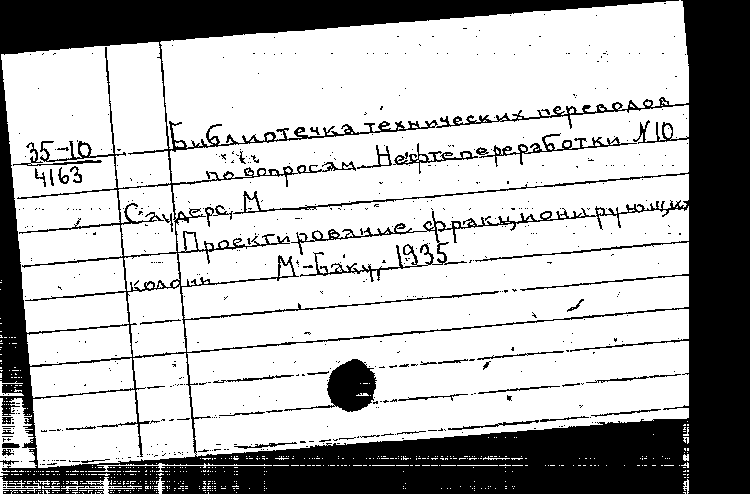 35-10
4163
Библиотечка технических переводов
по вопросам Нефтепереработки N10
Саудерс, М
Проектирование фракционирующих
колонн М-Баку, 1935